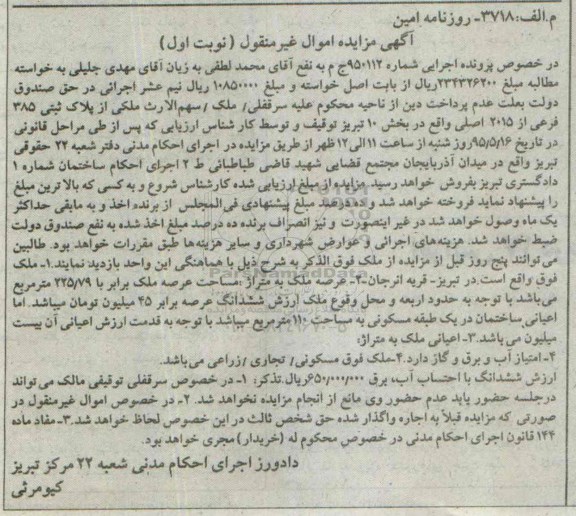 م.الف:۳۷۱۸- روزنامه امین
آگهی مزایده اموال غیرمنقول (نوبت اول)
در خصوص پرونده اجرایی شماره ۹۵۰۱۱۲ج م به نفع آقای محمد لطفی به زیان آقای مهدی جلیلی به خواسته
مطالبه مبلغ ۲۳۴۳۲۶۲۰۰ریال از بابت اصل خواسته و مبلغ ۱۰۸۵۰۰۰۰ ریال نیم عشر اجرائی در حق صندوق
دولت بعلت عدم پرداخت دین از ناحیه محکوم علیه سرقفلی/ ملک /سهم‌الارث ملکی از پلاک ثبتی ۳۸۵
فرعی از ۲۰۱۵ اصلی واقع در بخش ۱۰ تبریز توقیف و توسط کار شناس ارزیابی که پس از طی مراحل قانونی
در تاریخ ۹۵/۵/۱۶روز شنبه از ساعت ۱۱الی۱۲ظهر از طریق مزایده در اجرای احکام مدنی دفتر شعبه ۲۲ حقوقی
تبریز واقع در میدان آذربایجان مجتمع قضایی شهید قاضی طباطبائی ط ۲ اجرای احکام ساختمان شماره ۱
دادگستری تبریز بفروش خواهد رسید مزایده از مبلغ ارزیابی شده کارشناس شروع و به کسی که بالا ترین مبلغ
را پیشنهاد نماید فروخته خواهد شد و ده درصد مبلغ پیشنهادی فی‌المجلس از برنده اخذ و به مابقی حداکثر
یک ماه وصول خواهد شد در غیر اینصورت و نیز انصراف برنده ده درصد مبلغ اخذ شده به نفع صندوق دولت
ضبط خواهد شد. هزینه‌های اجرائی و عوارض شهرداری و سایر هزینه‌ها طبق مقررات خواهد بود. طالبین
می توانند پنج روز قبل از مزایده از ملک فوق الذکر به شرح ذیل با هماهنگی این واحد بازدید نمایند.۱- ملک
فوق واقع است.در تبریز- قریه انرجان-۲- عرصه ملک به متراژ :مساحت عرصه ملک برابر با ۲۲۵/۷۹ مترمربع
می‌باشد با توجه به حدود اربعه و محل وقوع ملک ارزش ششدانگ عرصه برابر ۴۵ میلیون تومان میباشد. اما
اعیانی ساختمان در یک طبقه مسکونی به مساحت ۱۱۰ مترمربع میباشد با توجه به قدمت ارزش اعیانی آن بیست
میلیون می باشد.۳- اعیانی ملک به متراژ:
۴-امتیاز آب و برق و گاز دارد.۴-ملک فوق مسکونی/ تجاری /زراعی می‌باشد.
ارزش ششدانگ با احتساب آب، برق ۶۵۰/۰۰۰/۰۰۰ریال.تذکر: ۱- در خصوص سرقفلی توقیفی مالک می تواند
درجلسه حضور یابد عدم حضور وی مانع از انجام مزایده نخواهد شد. ۲- در خصوص اموال غیرمنقول در
صورتی که مزایده قبلاً به اجاره واگذار شده حق شخص ثالث در این خصوص لحاظ خواهد شد.۳-مفاد ماده
۱۴۴ قانون اجرای احکام مدنی در خصوص محکوم له (خریدار) مجری خواهد بود.
دادورز اجرای احکام مدنی شعبه ۲۲ مرکز تبریز
کیومرثی
ParsNamadData